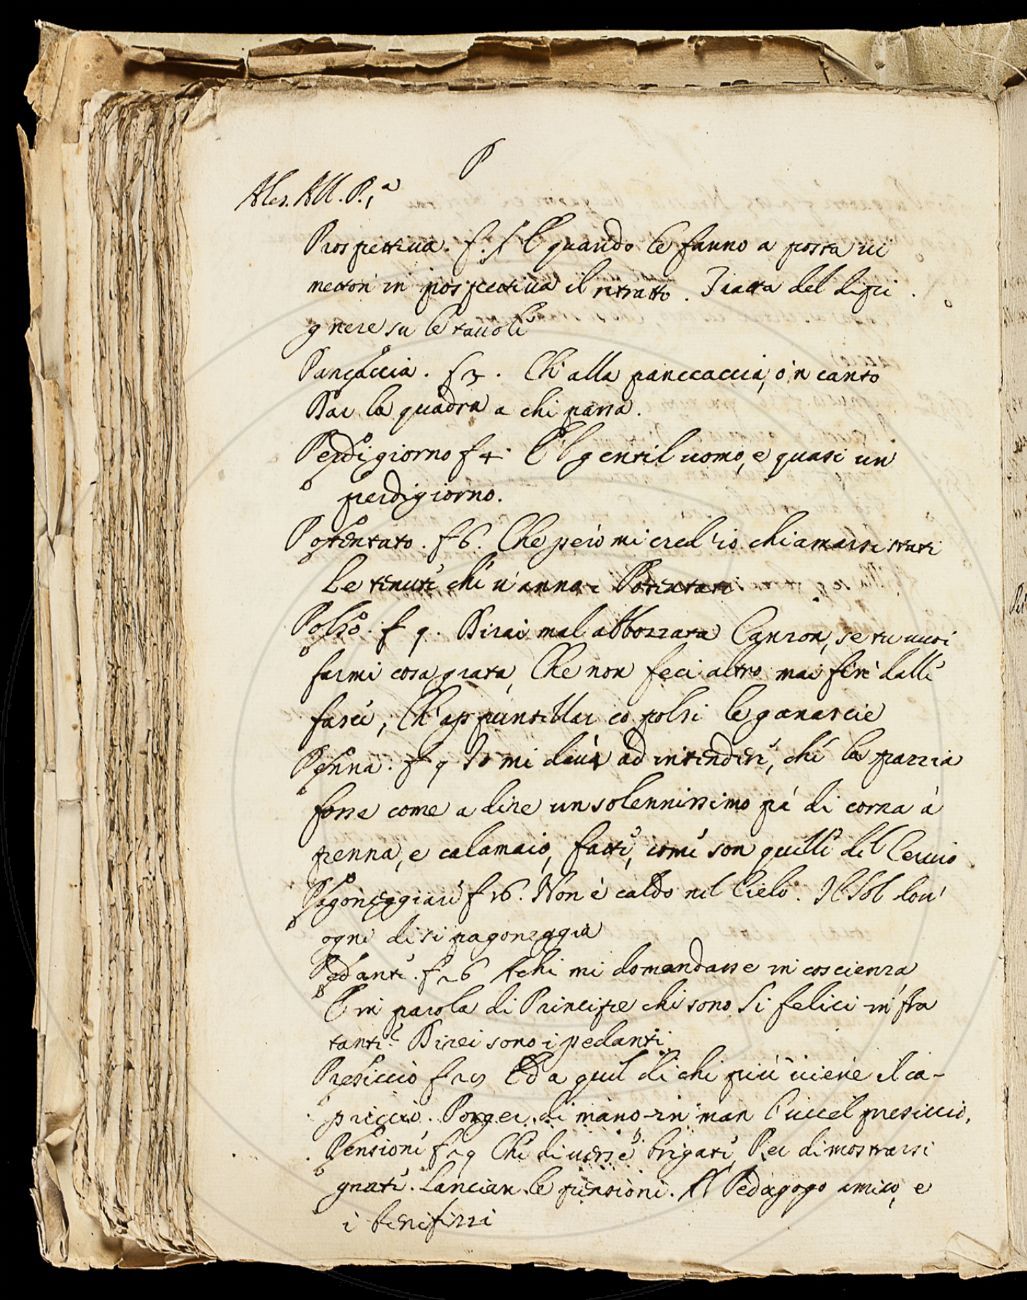 P
Ales. All. P. a
Prospettiva. f. 1 E quando le fanno a posta vi
metton in prospettiva il ritratto. Tratta del dipi
gnere su le tavole
Pancaccia. f 3. Ch' alla panccaccia, o 'n canto
Dai la quadra a chi passa.
Perdigiorno f 4. E 'l gentil uomo, e quasi un
perdigiorno.
Potentato. f 6. Che però mi cred' io chiamarsi stati
Le tenute ch' n' anno i Potentati
Polso. f 9. Dirai mal abbozzata Canzon, se tu vuoi
farmi cosa grata, Che non feci altro mai fin dalle
fasce, Ch' appuntellar co polsi le ganascie
Penna. f 9 Io mi davà ad intendere, che la pazzia
fosse come a dire un solennissimo pa di corna à
penna, e calamaio, fatte, come son quelle del Cervio
Pagoneggiare f 16. Non è caldo nel Cielo. Il Sol don'
ogni dì si pagoneggia
Pedante. f 16 S' chi mi domandasse in coscienza
E in parola di Principe chi sono Si felici in fra
tanti? Direi sono i pedanti
Presiccio f 19 Ed a quel di chi più viene il ca-
priccio. Porger di mano in man l' uccel presiccio.
Pensione f 19 Che diverse brigate, Per dimostrarsi
grate. Lancian le pensioni. Al Pedagogo amico, e
i benefizzi